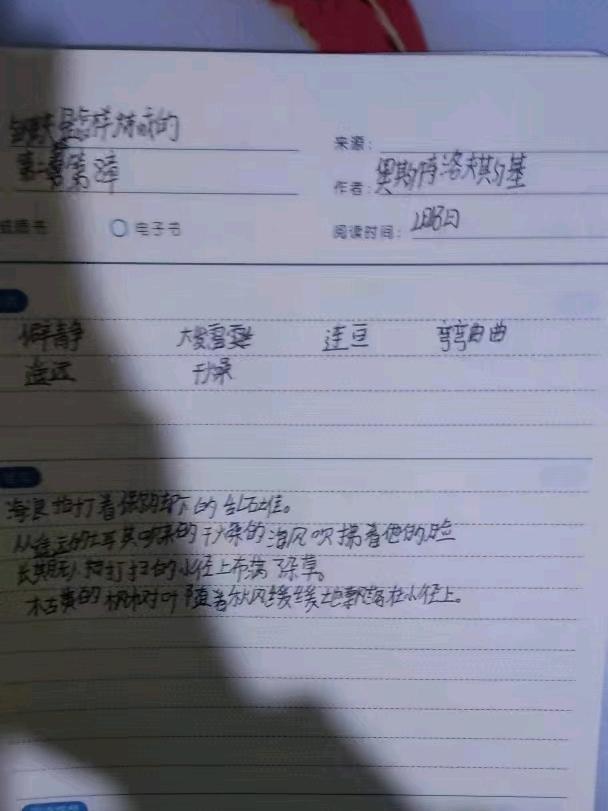 钢铁是怎样炼成的
来源:
第二章第8章
作者: 奥斯特洛夫斯基
纸质书 电子书 阅读时间:
僻静 连亘 弯弯曲曲
遥远 干燥
海浪拍打着 的 石堆。
从遥远的土耳其吹来的干燥的海风吹拂着他的脸
长期无人打扫的小径上布满了绿草。
枯黄的枫树叶随着秋风缓缓地飘落在小径上。